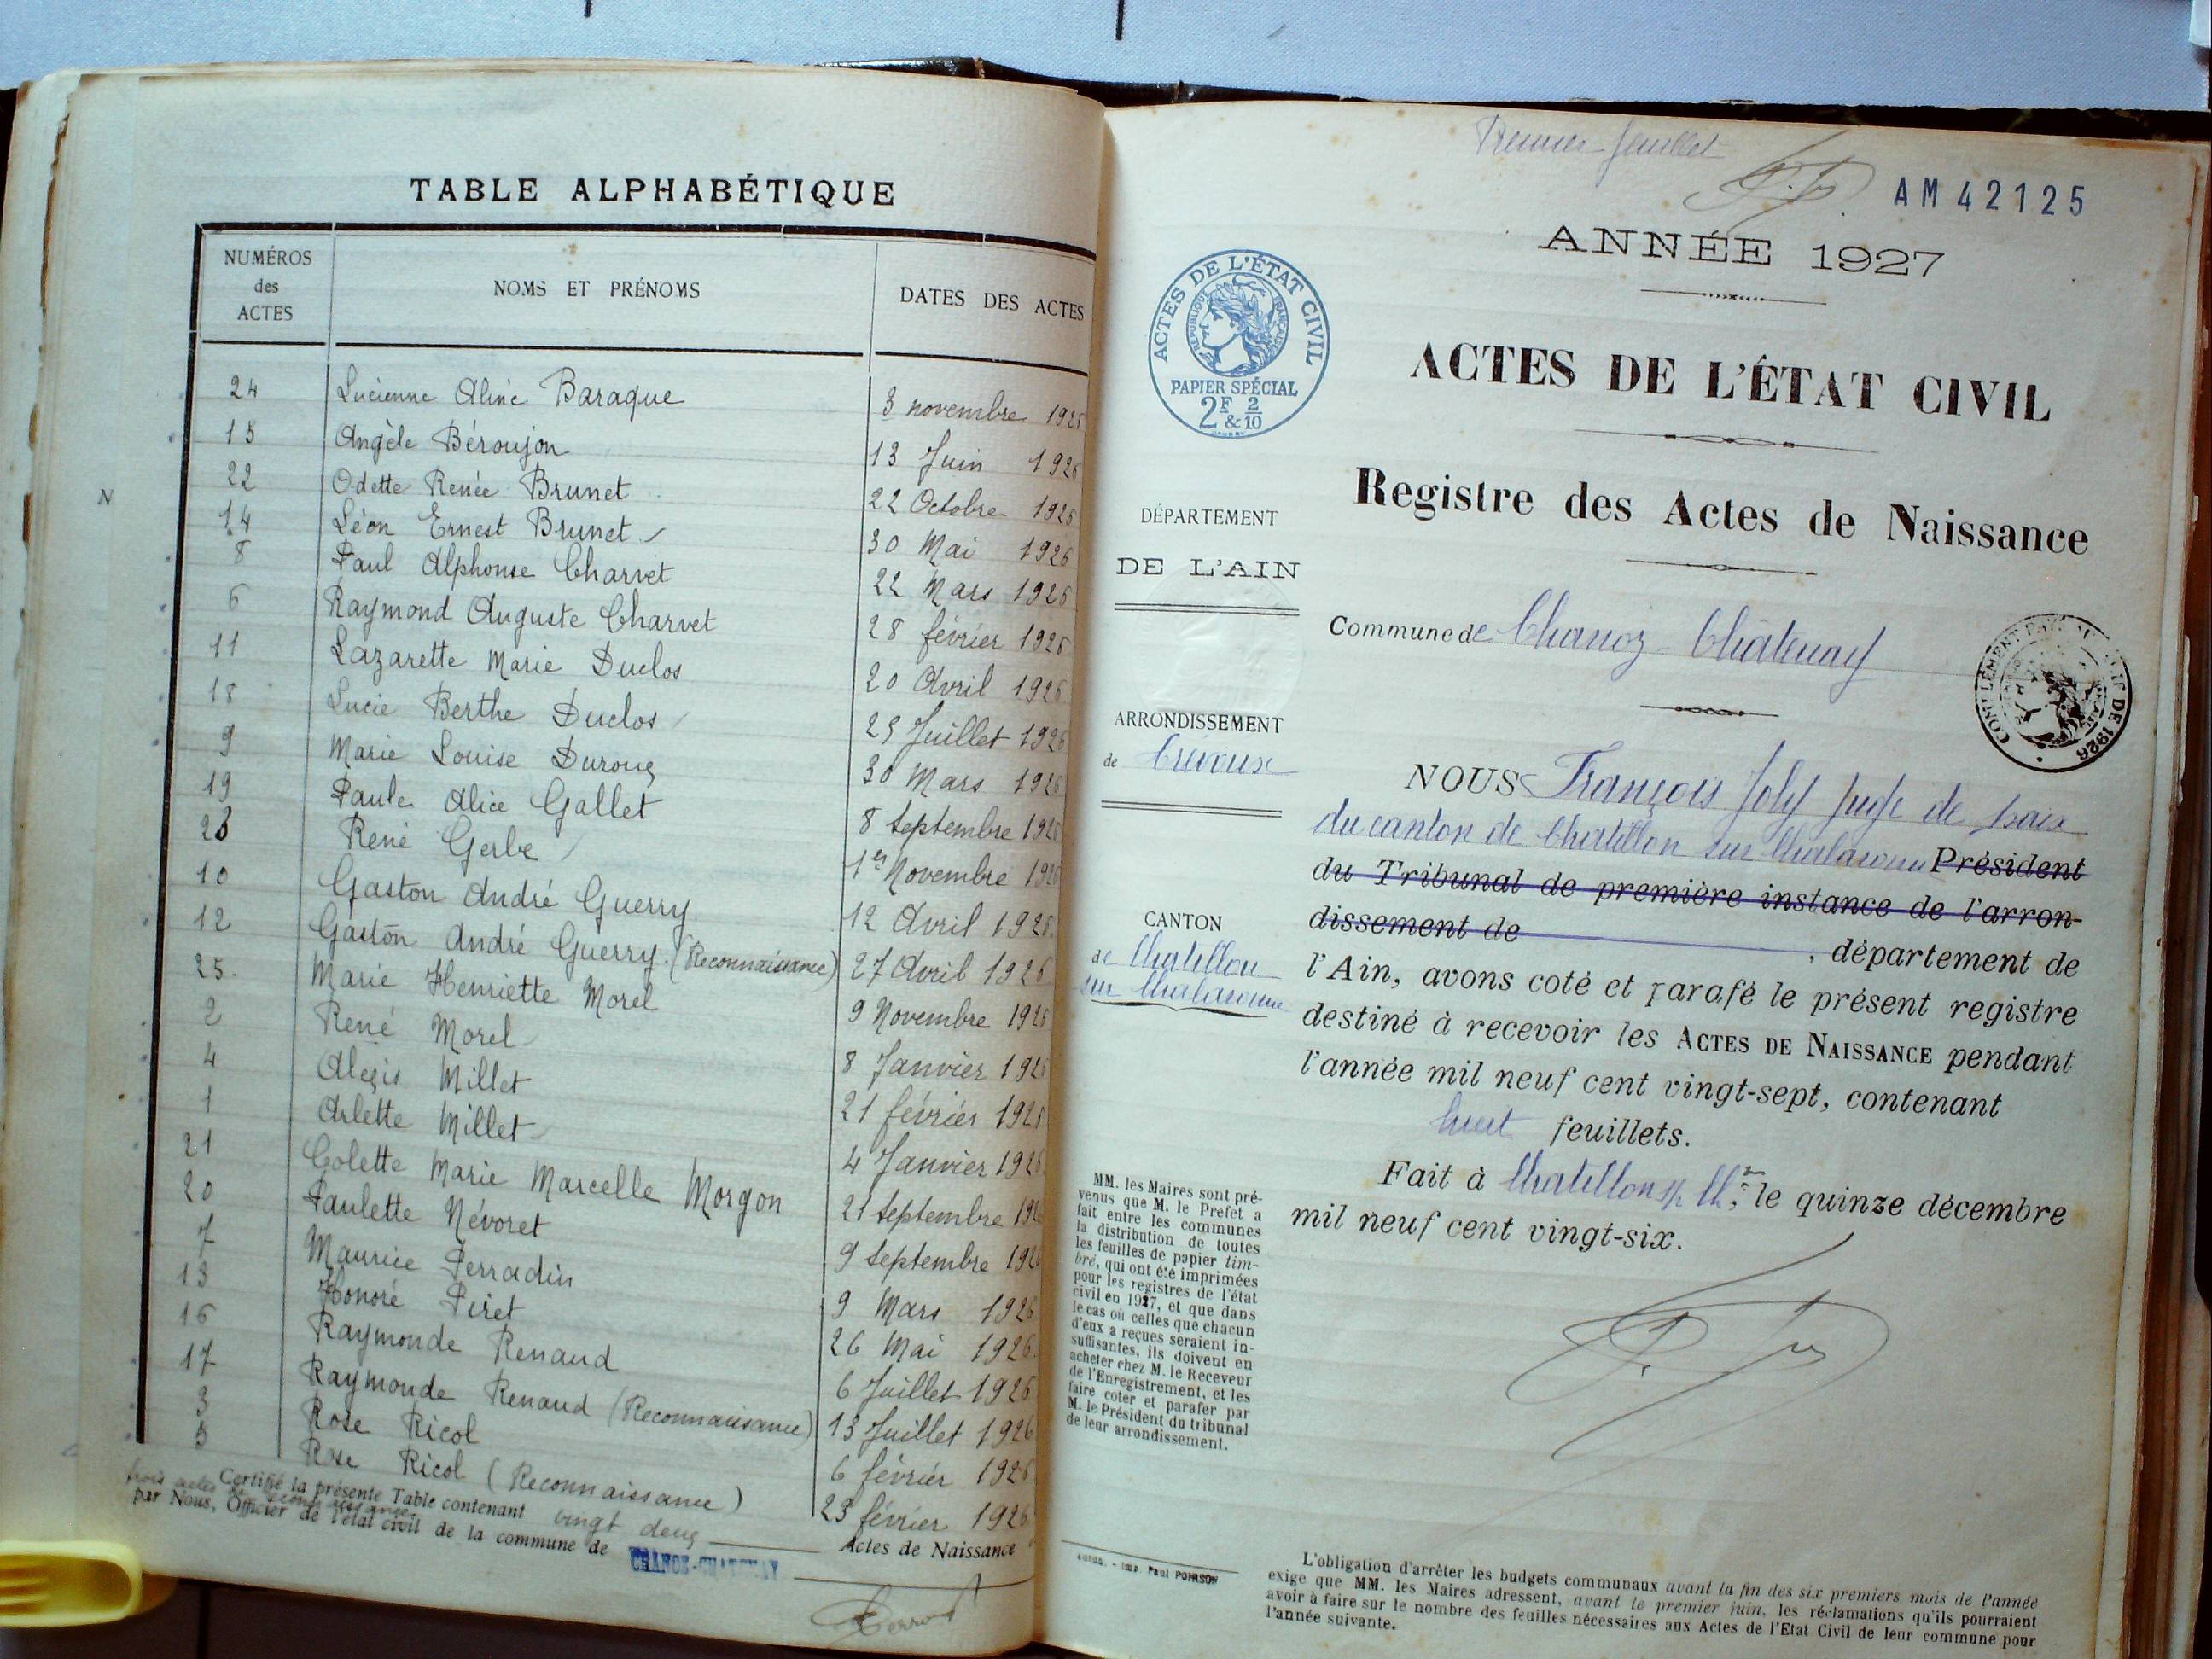 TABLE ALPHABÉTIQUE
NUMÉROS des ACTES
NOMS ET PRÉNOMS
DATES DES ACTES
24 Lucienne Aline Baraque 3 novembre 1926
15 Angèle Béroujon 13 Juin 1926
22 Odette Renée Brunet 22 Octobre 1926
14 Léon Ernest Brunet 30 Mai 1926
8 Paul Alphonse Charvet 22 Mars 1926
6 Raymond Auguste Charvet 28 février 1926
11 Lazarette Marie Duclos 20 Avril 1926
18 Lucie Berthe Duclos 29 Juillet 1926
9 Marie Louise Duroux 30 Mars 1926
19 Paule Alice Gallet 8 Septembre 1926
23 René Gerbe 1er Novembre 1926
10 Gaston André Guerry 12 Avril 1926
12 Gaston André Guerry (Reconnaissance) 27 Avril 1926
25 Marie Henriette Morel 9 Novembre 1926
2 René Morel 8 Janvier 1926
4 Alexis Millet 21 février 1926
1 Arlette Millet 4 Janvier 1926
21 Colette Marie Marcelle Morgon 21 Septembre 1926
20 Paulette Névoret 9 Septembre 1926
7 Maurice Perradin 9 Mars 1926
13 Honoré Piret 26 Mai 1926
16 Raymonde Renaud 6 Juillet 1926
17 Raymonde Renaud (Reconnaissance) 13 Juillet 1926
3 Rose Ricol 6 février 1926
5 Rose Ricol (Reconnaissance) 23 février 1926
Certifié la présente Table contenant vingt deux Actes de Naissance
trois actes de reconnaissance
par Nous, Officier de l'état civil de la commune de CHANOZ-CHATENAY
N
Premier feuillet
AM 42125
ANNÉE 1927
ACTES DE L'ÉTAT CIVIL
RÉPUBLIQUE FRANÇAISE
PAPIER SPÉCIAL
2F & 2/10
ACTES DE L'ÉTAT CIVIL
Registre des Actes de Naissance
DÉPARTEMENT
DE L'AIN
Commune de Chanoz-Châtenay
DE 1926
ARRONDISSEMENT
de Trévoux
CANTON
de Chatillon
sur Chalaronne
NOUS François Joly Juge de paix
du canton de Chatillon sur Chalaronne Président
du Tribunal de première instance de l'arron-
dissement de , département de
l'Ain, avons coté et parafé le présent registre
destiné à recevoir les ACTES DE NAISSANCE pendant
l'année mil neuf cent vingt-sept, contenant
huit feuillets.
Fait à Chatillon s/ Ch.ne le quinze décembre
mil neuf cent vingt-six.
MM. les Maires sont pré-
venus que M. le Préfet a
fait entre les communes
la distribution de toutes
les feuilles de papier tim-
bré, qui ont été imprimées
pour les registres de l'état
civil en 1927, et que dans
le cas où celles que chacun
d'eux a reçues seraient in-
suffisantes, ils doivent en
acheter chez M. le Receveur
de l'Enregistrement, et les
faire coter et parafer par
M. le Président du tribunal
de leur arrondissement.
Imp. Paul POIRSON
L'obligation d'arrêter les budgets communaux avant la fin des six premiers mois de l'année
exige que MM. les Maires adressent, avant le premier juin, les réclamations qu'ils pourraient
avoir à faire sur le nombre des feuilles nécessaires aux Actes de l'Etat Civil de leur commune pour
l'année suivante.